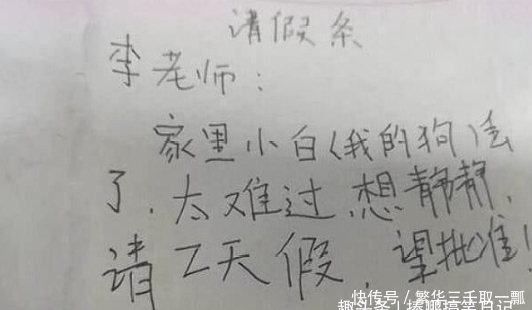 请假条
李老师：
家里小白(我的狗)丢
了，太难过，想静静，
请2天假，望批准！
快传号／繁华三千取一瓢
趣头条 搞笑日记